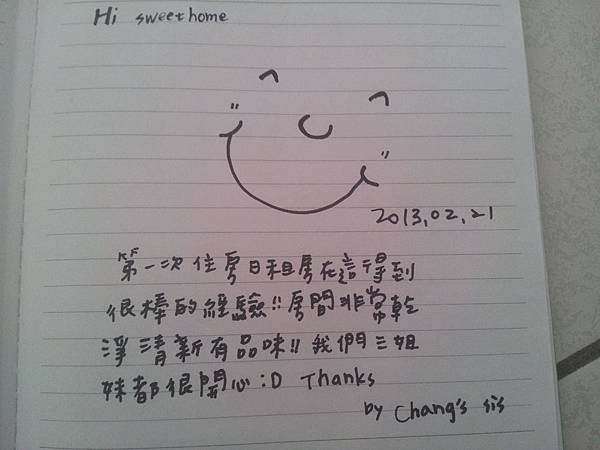 Hi sweet home
2013.02.21
第一次住房日租房在這得到
很棒的經驗!!房間非常乾
淨清新有品味!!我們三姐
妹都很開心:D Thanks
by Chang's sis